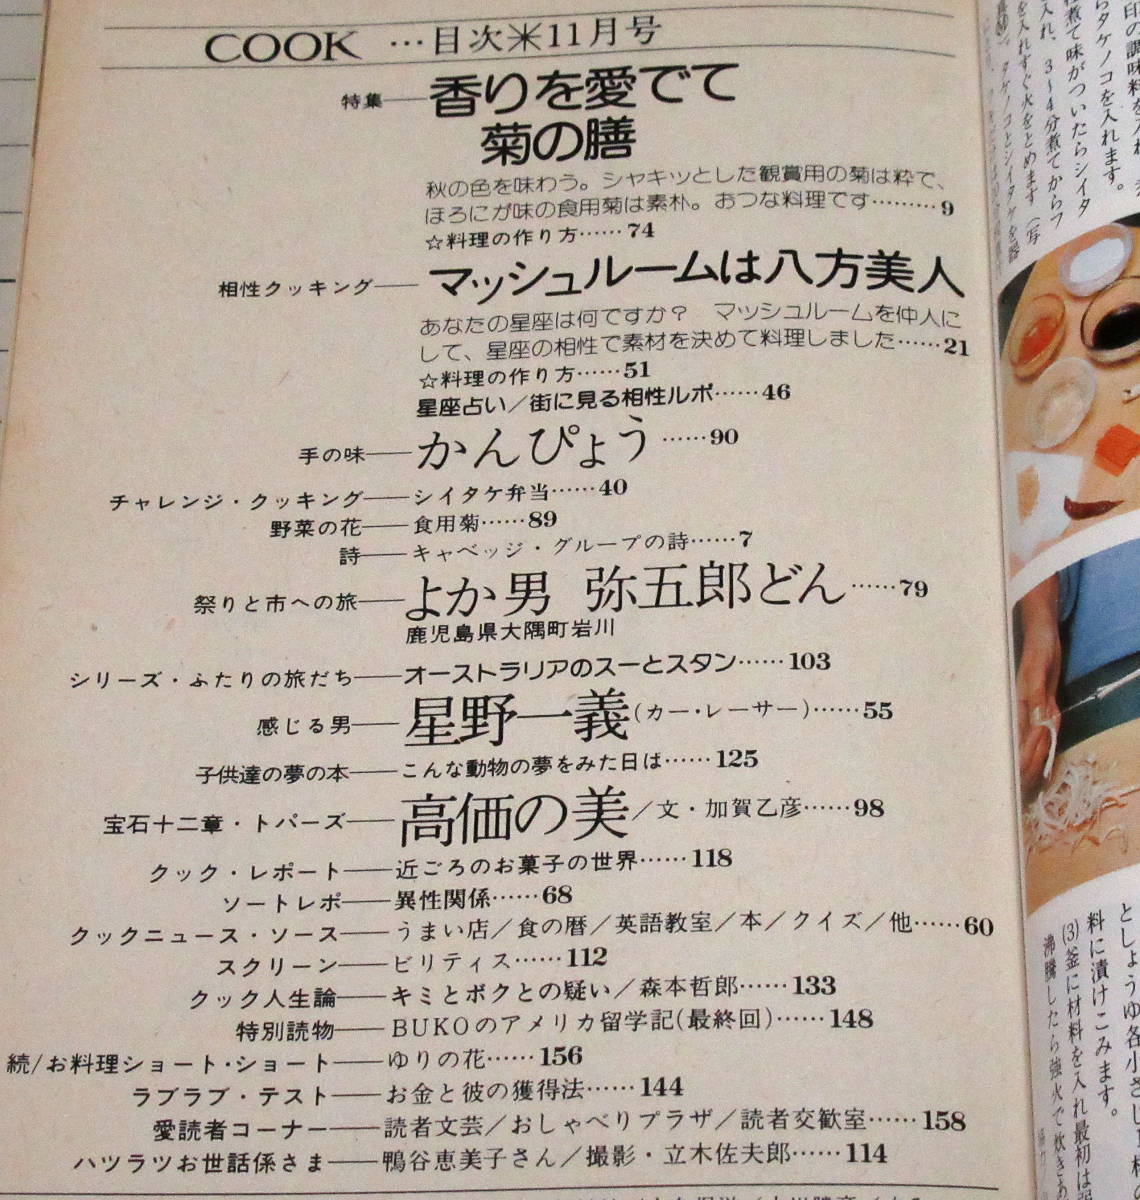 COOK …目次※11月号
特集──香りを愛でて
菊の膳
秋の色を味わう。シャキッとした観賞用の菊は粋で、
ほろにが味の食用菊は素朴。おつな料理です………9
☆料理の作り方……74
相性クッキング──マッシュルームは八方美人
あなたの星座は何ですか？　マッシュルームを仲人に
して、星座の相性で素材を決めて料理しました……21
☆料理の作り方……51
星座占い／街に見る相性ルポ……46
手の味──かんぴょう……90
チャレンジ・クッキング──シイタケ弁当……40
野菜の花──食用菊……89
詩──キャベッジ・グループの詩……7
祭りと市への旅──よか男 弥五郎どん……79
鹿児島県大隅町岩川
シリーズ・ふたりの旅だち──オーストラリアのスーとスタン……103
感じる男──星野一義(カー・レーサー)……55
子供達の夢の本──こんな動物の夢をみた日は……125
宝石十二章・トパーズ──高価の美／文・加賀乙彦……98
クック・レポート──近ごろのお菓子の世界……118
ソートレポ──異性関係……68
クックニュース・ソース──うまい店／食の暦／英語教室／本／クイズ／他……60
スクリーン──ビリティス……112
クック人生論──キミとボクとの疑い／森本哲郎……133
特別読物──BUKOのアメリカ留学記(最終回)……148
続/お料理ショート・ショート──ゆりの花……156
ラブラブ・テスト──お金と彼の獲得法……144
愛読者コーナー──読者文芸／おしゃべりプラザ／読者交歓室……158
ハツラツお世話係さま──鴨谷恵美子さん／撮影・立木佐夫郎……114
らタケノコを入れます。
煮て味がついたらシイタ
入れ、3〜4分煮てからフ
を入れすぐ火をとめます（写
としょうゆ各小さじ1
料に漬けこみます。
(3)釜に材料を入れ最初は
沸騰したら強火で炊き